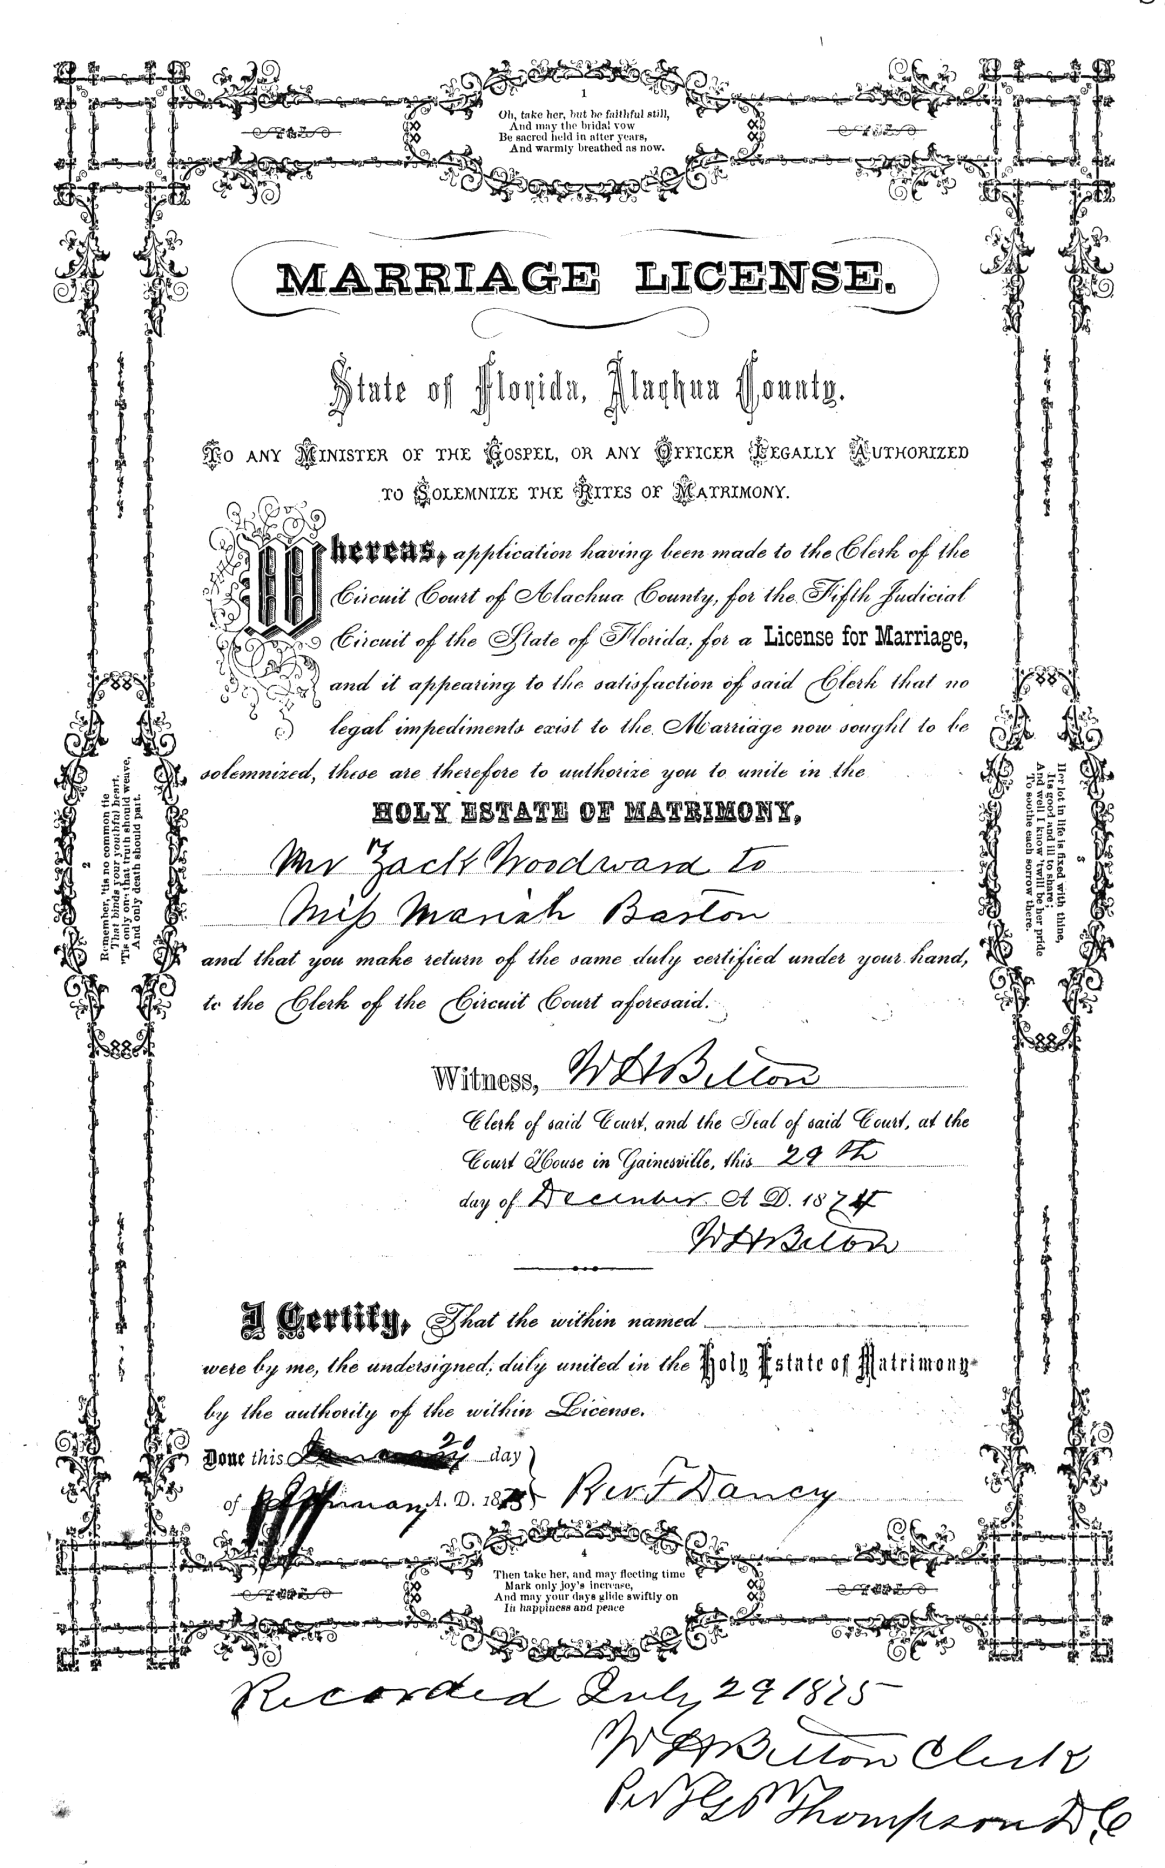 1
Oh, take her, but be faithful still,
And may the bridal vow
Be sacred held in after years,
And warmly breathed as now.
MARRIAGE LICENSE.
State of Florida, Alachua County.
TO ANY MINISTER OF THE GOSPEL, OR ANY OFFICER LEGALLY AUTHORIZED
TO SOLEMNIZE THE RITES OF MATRIMONY.
Whereas, application having been made to the Clerk of the
Circuit Court of Alachua County, for the Fifth Judicial
Circuit of the State of Florida, for a License for Marriage,
and it appearing to the satisfaction of said Clerk that no
legal impediments exist to the Marriage now sought to be
solemnized, these are therefore to authorize you to unite in the
HOLY ESTATE OF MATRIMONY,
Mr Zack Woodward to
Miss Mariah Barton
and that you make return of the same duly certified under your hand,
to the Clerk of the Circuit Court aforesaid.
2
Remember, 'tis no common tie
That binds your youthful heart,
'Tis only on that truth should weave,
And only death should part.
3
Her lot in life is fixed with thine,
Its good and ill to share;
And well I know 'twill be her pride
To soothe each sorrow there.
Witness, W H Belton
Clerk of said Court, and the Seal of said Court, at the
Court House in Gainesville, this 29th
day of December A. D. 1874
W H Belton
I Certify, That the within named
were by me, the undersigned, duly united in the Holy Estate of Matrimony
by the authority of the within License.
Done this 20 day
of A. D. 18 Rev F Dancy
4
Then take her, and may fleeting time
Mark only joy's increase,
And may your days glide swiftly on
In happiness and peace
Recorded July 29 1875
W H Belton Clerk
Thompson D.C